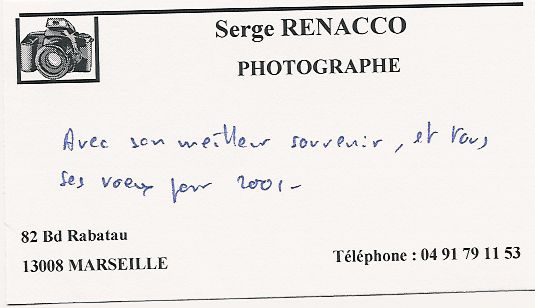 Serge RENACCO
PHOTOGRAPHE
Avec son meilleur souvenir, et tous
ses voeux pour 2001-
82 Bd Rabatau
13008 MARSEILLE
Téléphone : 04 91 79 11 53